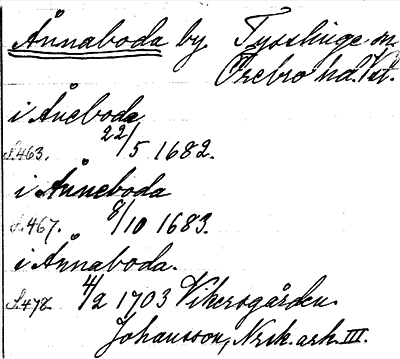 Ånnaboda by Tysslinge sn
Örebro hd. Vstl.
i Åneboda
22/5 1682.
S. 463.
i Ånneboda
S. 467. 8/10 1683.
i Ånnaboda.
S. 478. 4/2 1703 Vikersgården
Johansson, Nrik. ark. III.